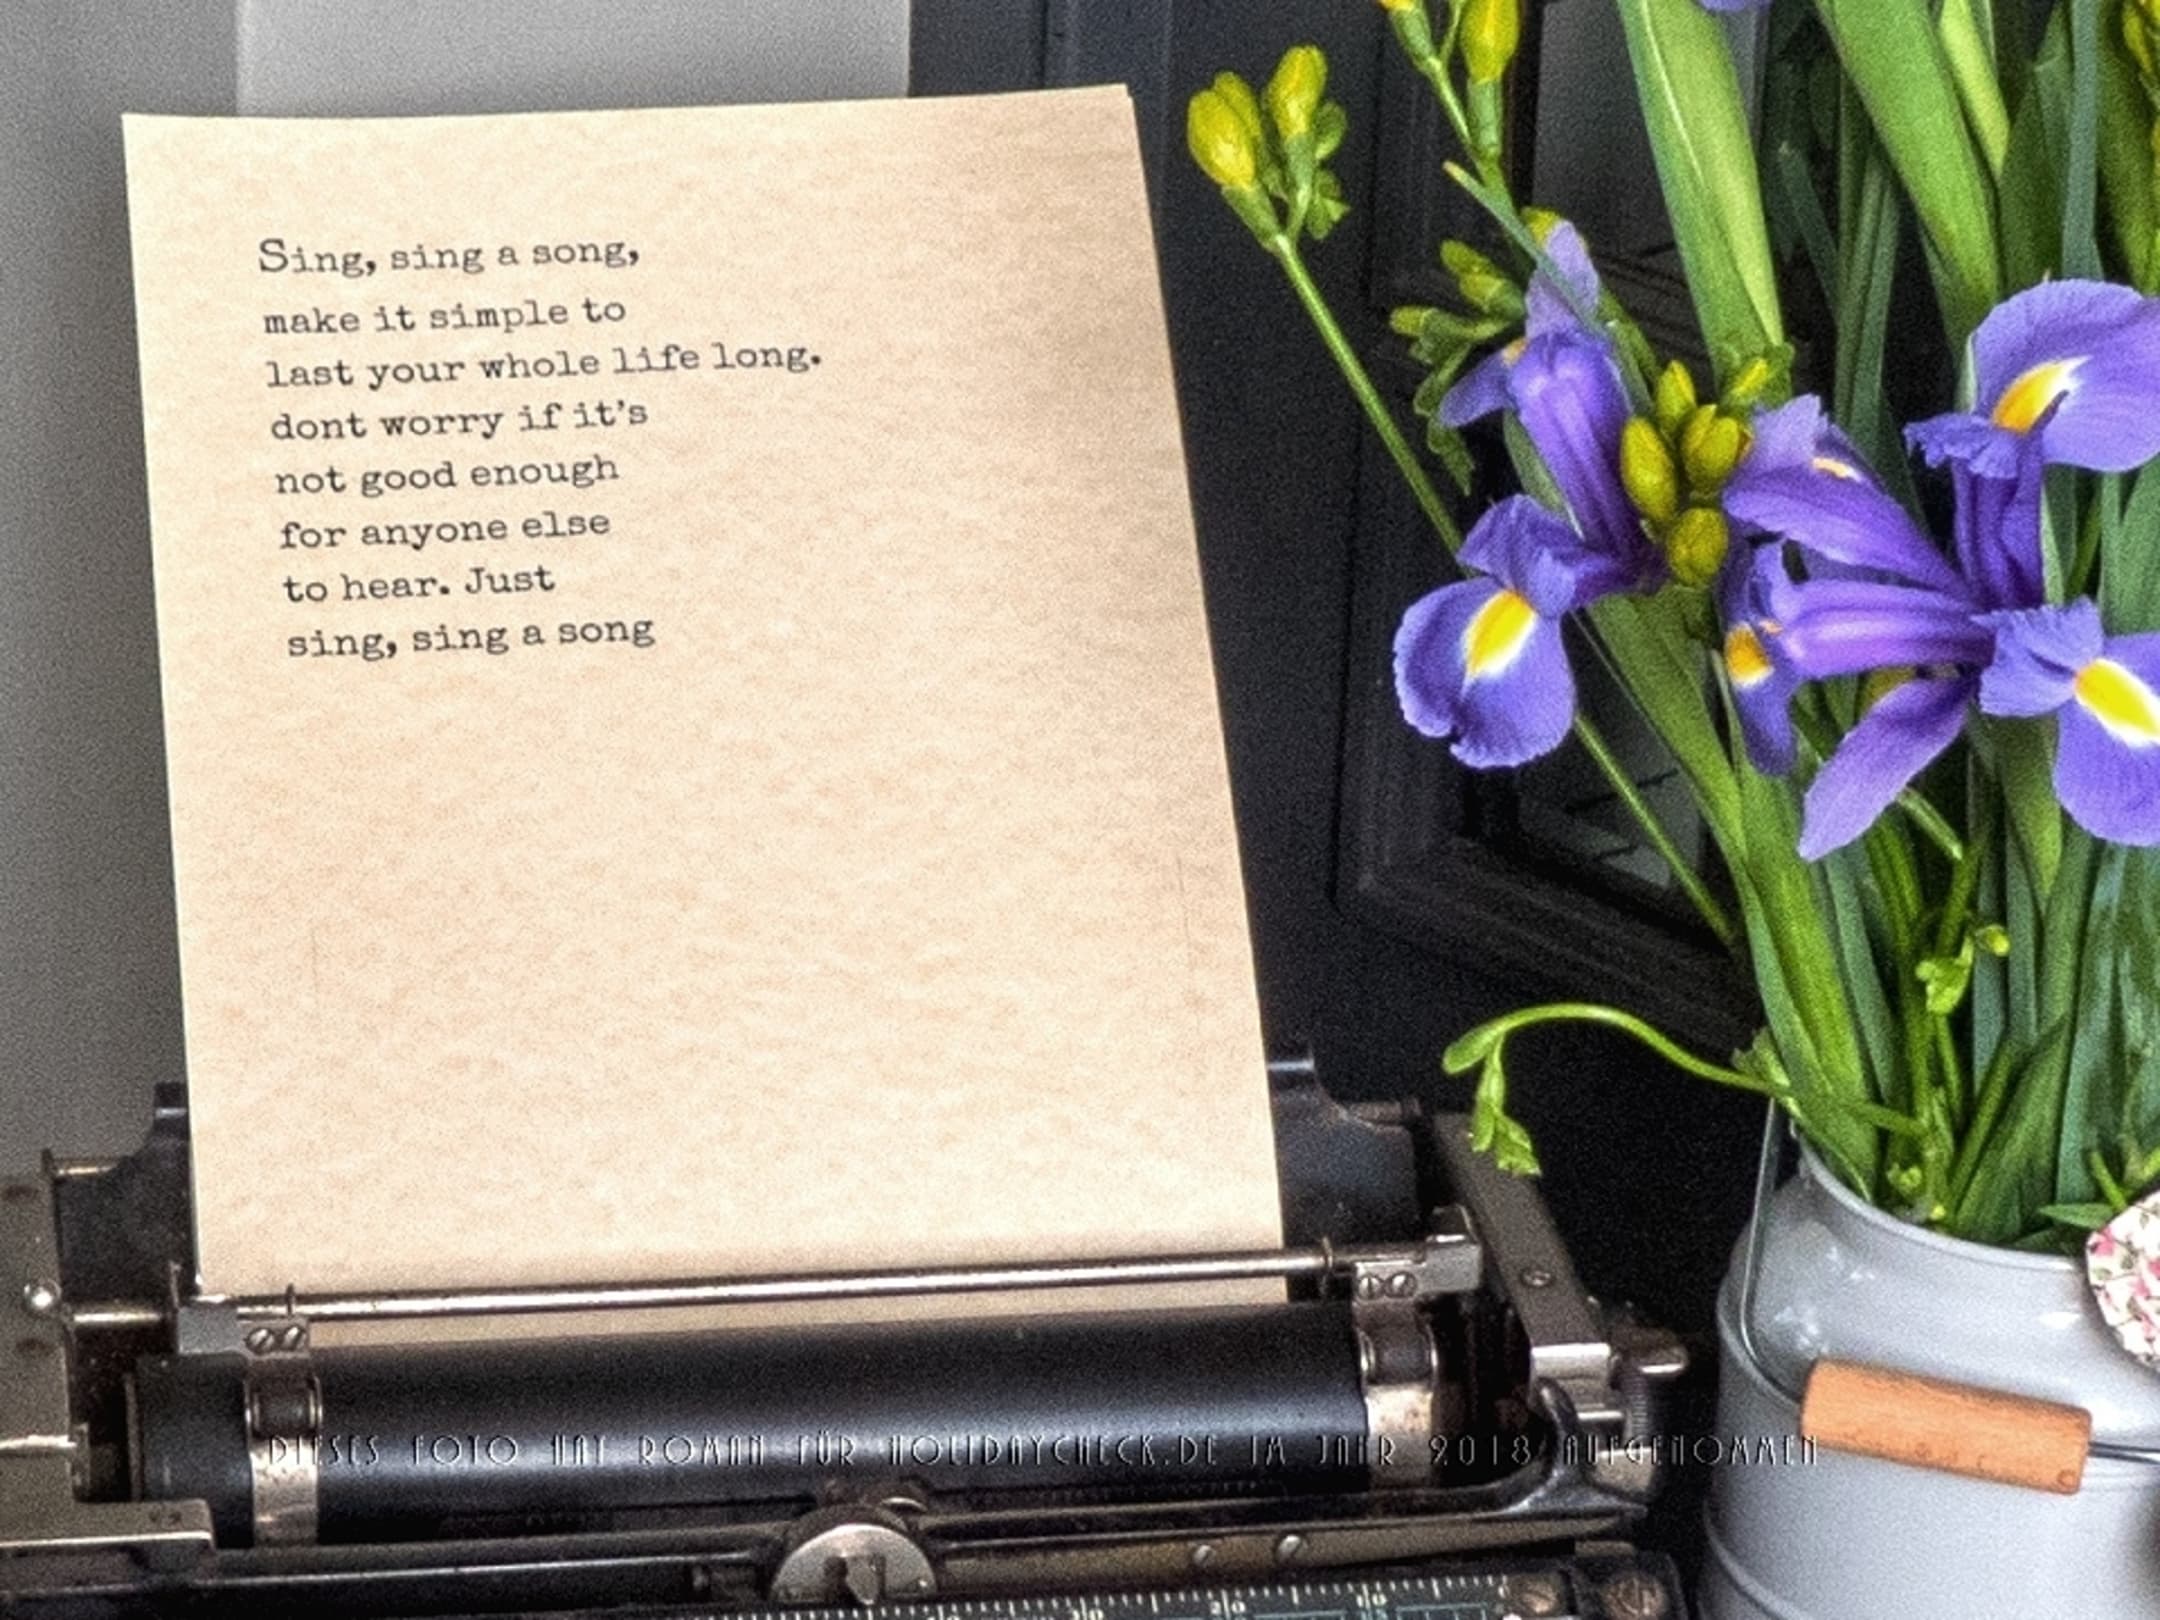 Sing, sing a song,
make it simple to
last your whole life long.
dont worry if it's
not good enough
for anyone else
to hear. Just
sing, sing a song
DIESES FOTO HAT ROMAN FÜR HOLIDAYCHECK.DE IM JAHR 2018 AUFGENOMMEN
20 10